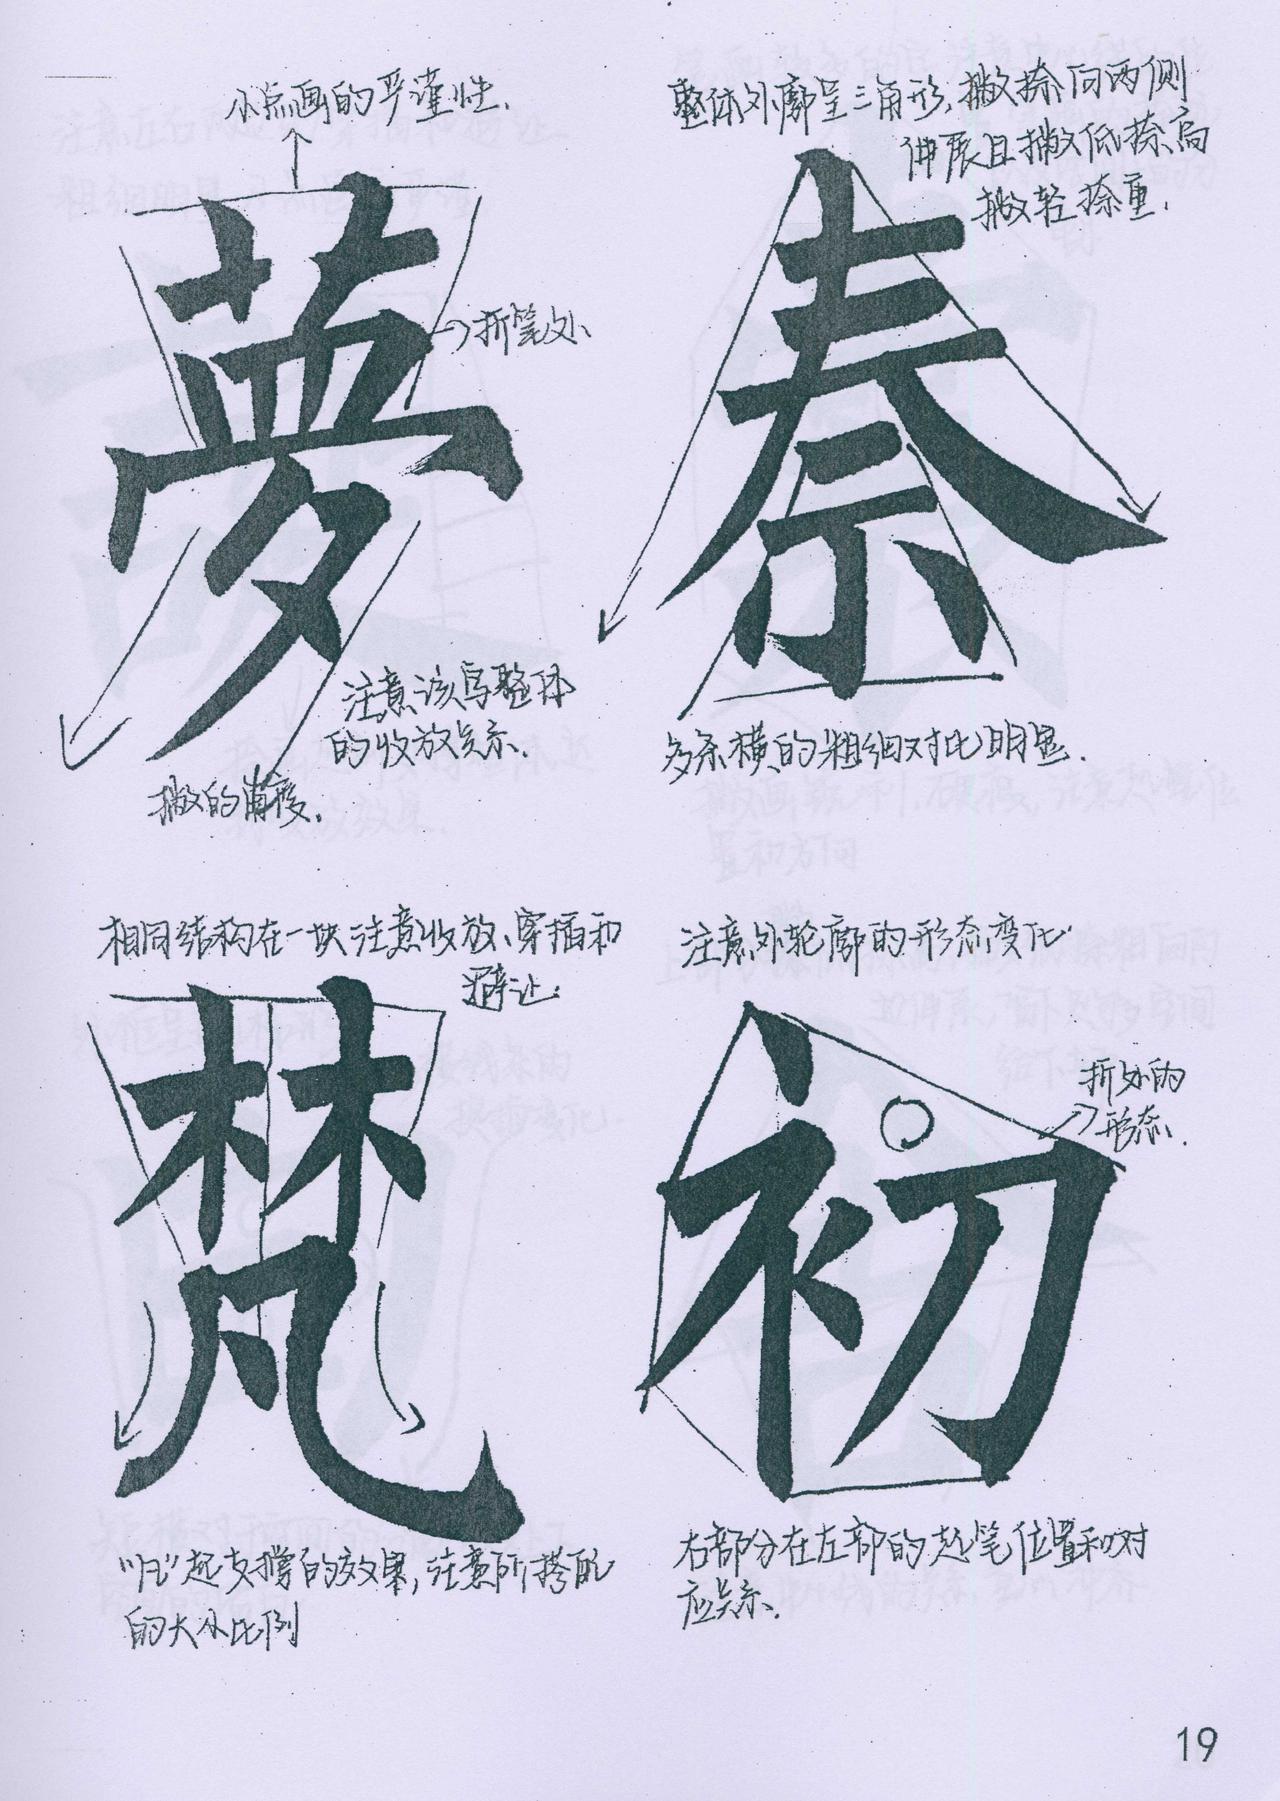 小点画的严谨性.
夢
折笔处
注意该字整体
的收放关系.
撇的角度.
整体外廓呈三角形,撇捺向两侧
伸展且撇低捺高
撇轻捺重.
奈
多条横的粗细对比明显.
相同结构在一块注意收放、穿插和
避让.
梵
"几"起支撑的效果,注意所搭配
的大小比例
注意外轮廓的形态变化
初
折处的
形态.
右部分在左部的起笔位置和对
应关系.
19